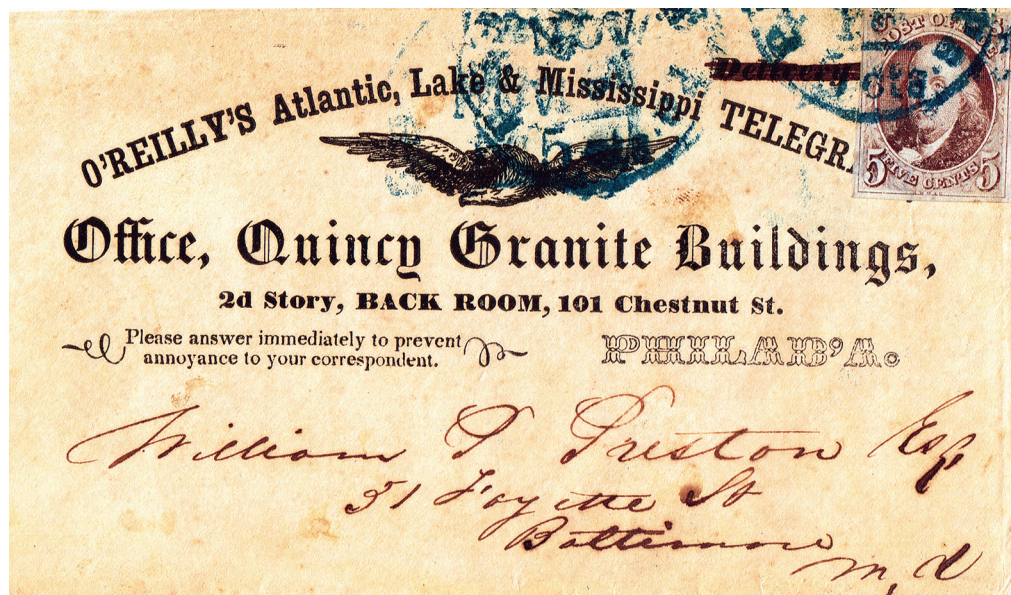 POST OFFICE
Delivery
O'REILLY'S Atlantic, Lake & Mississippi TELEGRA
5 cts
5 FIVE CENTS 5
Office, Quincy Granite Buildings,
2d Story, BACK ROOM, 101 Chestnut St.
Please answer immediately to prevent
annoyance to your correspondent.
PHILAD'A.
William P Preston Esq
51 Fayette St
Baltimore
M.d